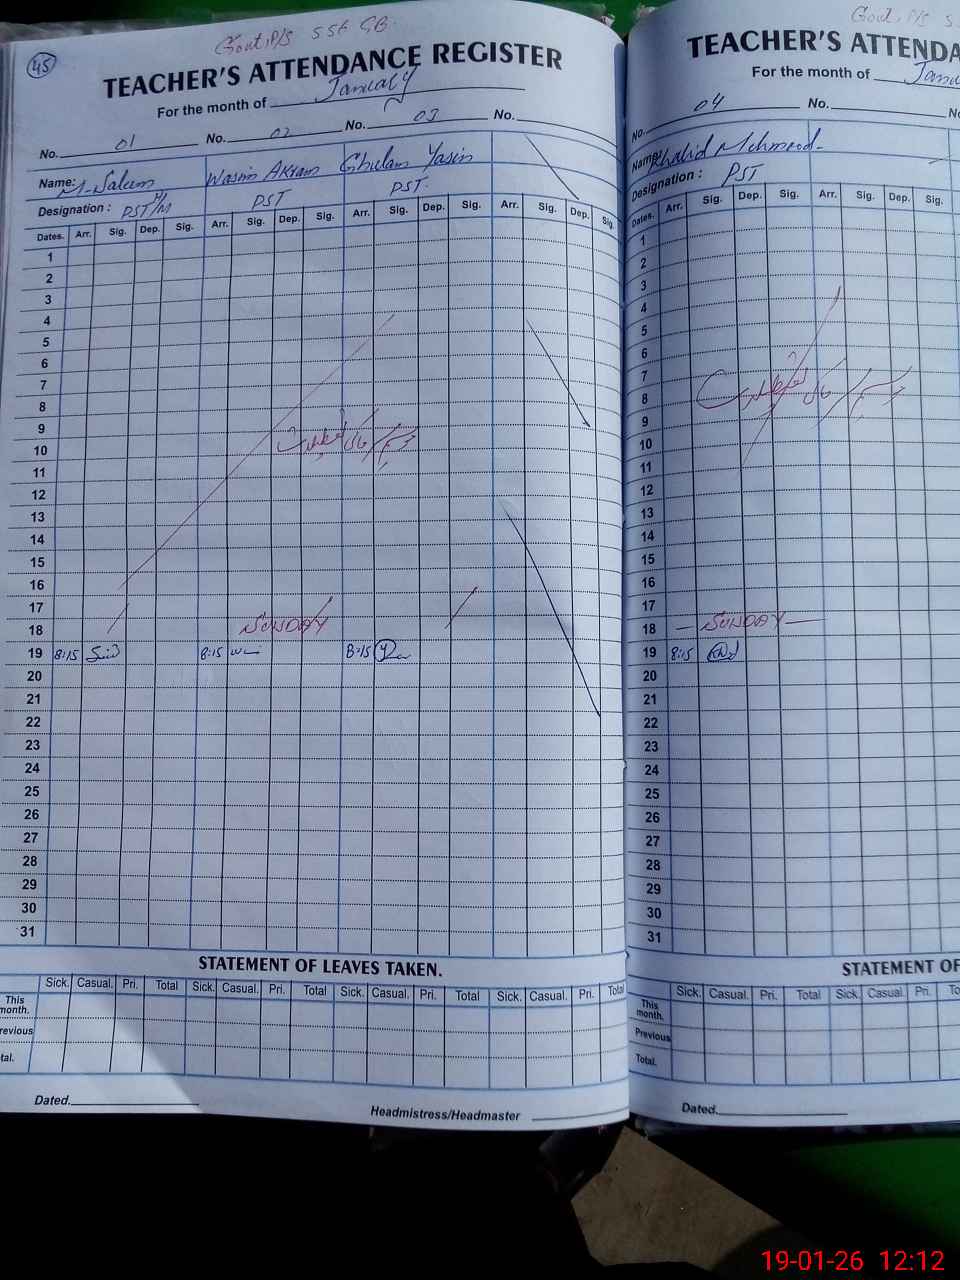 45
Govt, P/S SSF GB.
TEACHER'S ATTENDANCE REGISTER
For the month of January
No. 01 No. 02 No. 03 No.
Name: M-Saleem Wasim Akram Ghulam Yasin
Designation: PST PST PST.
Dates. Arr. Sig. Dep. Sig. Arr. Sig. Dep. Sig. Arr. Sig. Dep. Sig. Arr. Sig. Dep. Sig.
1
2
3
4
5
6
7
8
9
10
11
12
13
14
15
16
17
18 SUNDAY
19 8:15 8:15 8:15
20
21
22
23
24
25
26
27
28
29
30
31
STATEMENT OF LEAVES TAKEN.
Sick. Casual. Pri. Total Sick. Casual. Pri. Total Sick. Casual. Pri. Total Sick. Casual. Pri. Total
This month.
revious
tal.
Dated.
Headmistress/Headmaster
Govt, P/S S
TEACHER'S ATTENDA
For the month of Janu
No. 04 No. No
Name: Khalid Mehmood
Designation: PST
Dates. Arr. Sig. Dep. Sig. Arr. Sig. Dep. Sig.
1
2
3
4
5
6
7
8
9
10
11
12
13
14
15
16
17
18 SUNDAY
19 8:15
20
21
22
23
24
25
26
27
28
29
30
31
STATEMENT OF
Sick. Casual. Pri. Total Sick. Casual Pri. To
This month.
Previous
Total.
Dated.
19-01-26 12:12